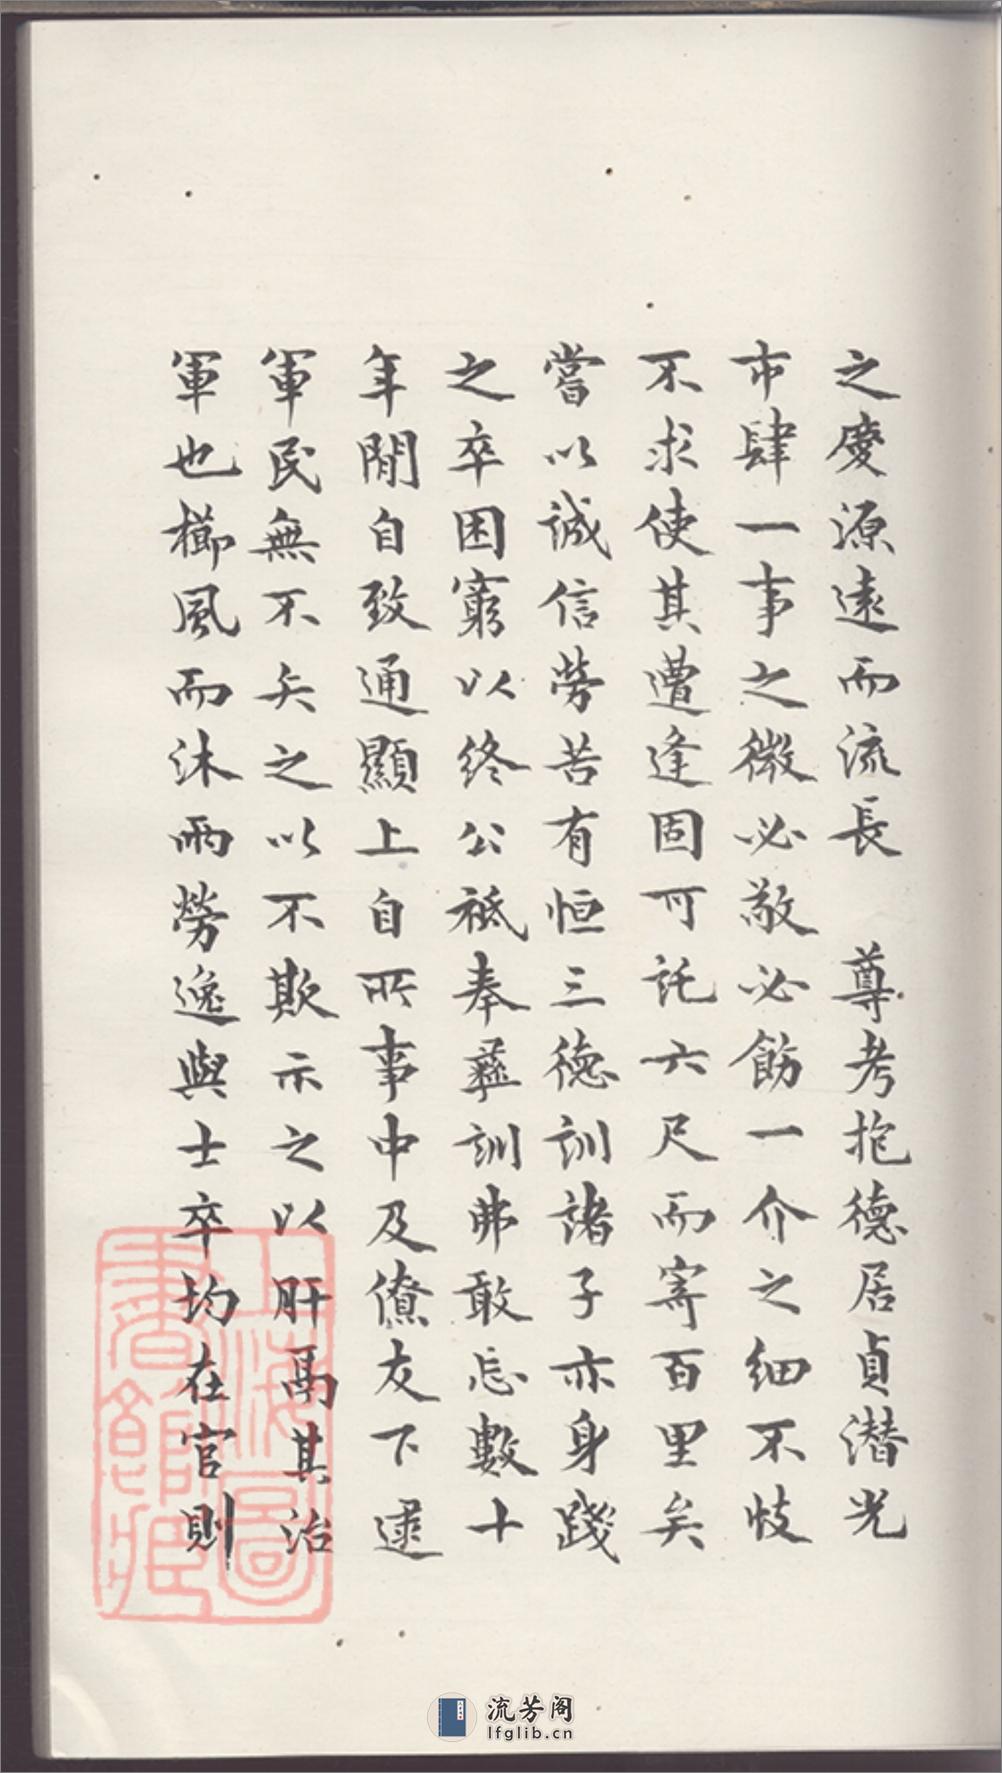 之慶源遠而流長　尊考抱德居貞潛光
市肆一事之微必敬必飭一介之細不忮
不求使其遭逢固可託六尺而寄百里矣
嘗以誠信勞苦有恒三德訓諸子亦身踐
之卒困窮以終公祗奉彝訓弗敢忘數十
年閒自致通顯上自所事中及僚友下逮
軍民無不矢之以不欺示之以肝鬲其治
軍也櫛風而沐雨勞逸與士卒均在官則
上海圖
書館藏
流芳阁
lfglib.cn